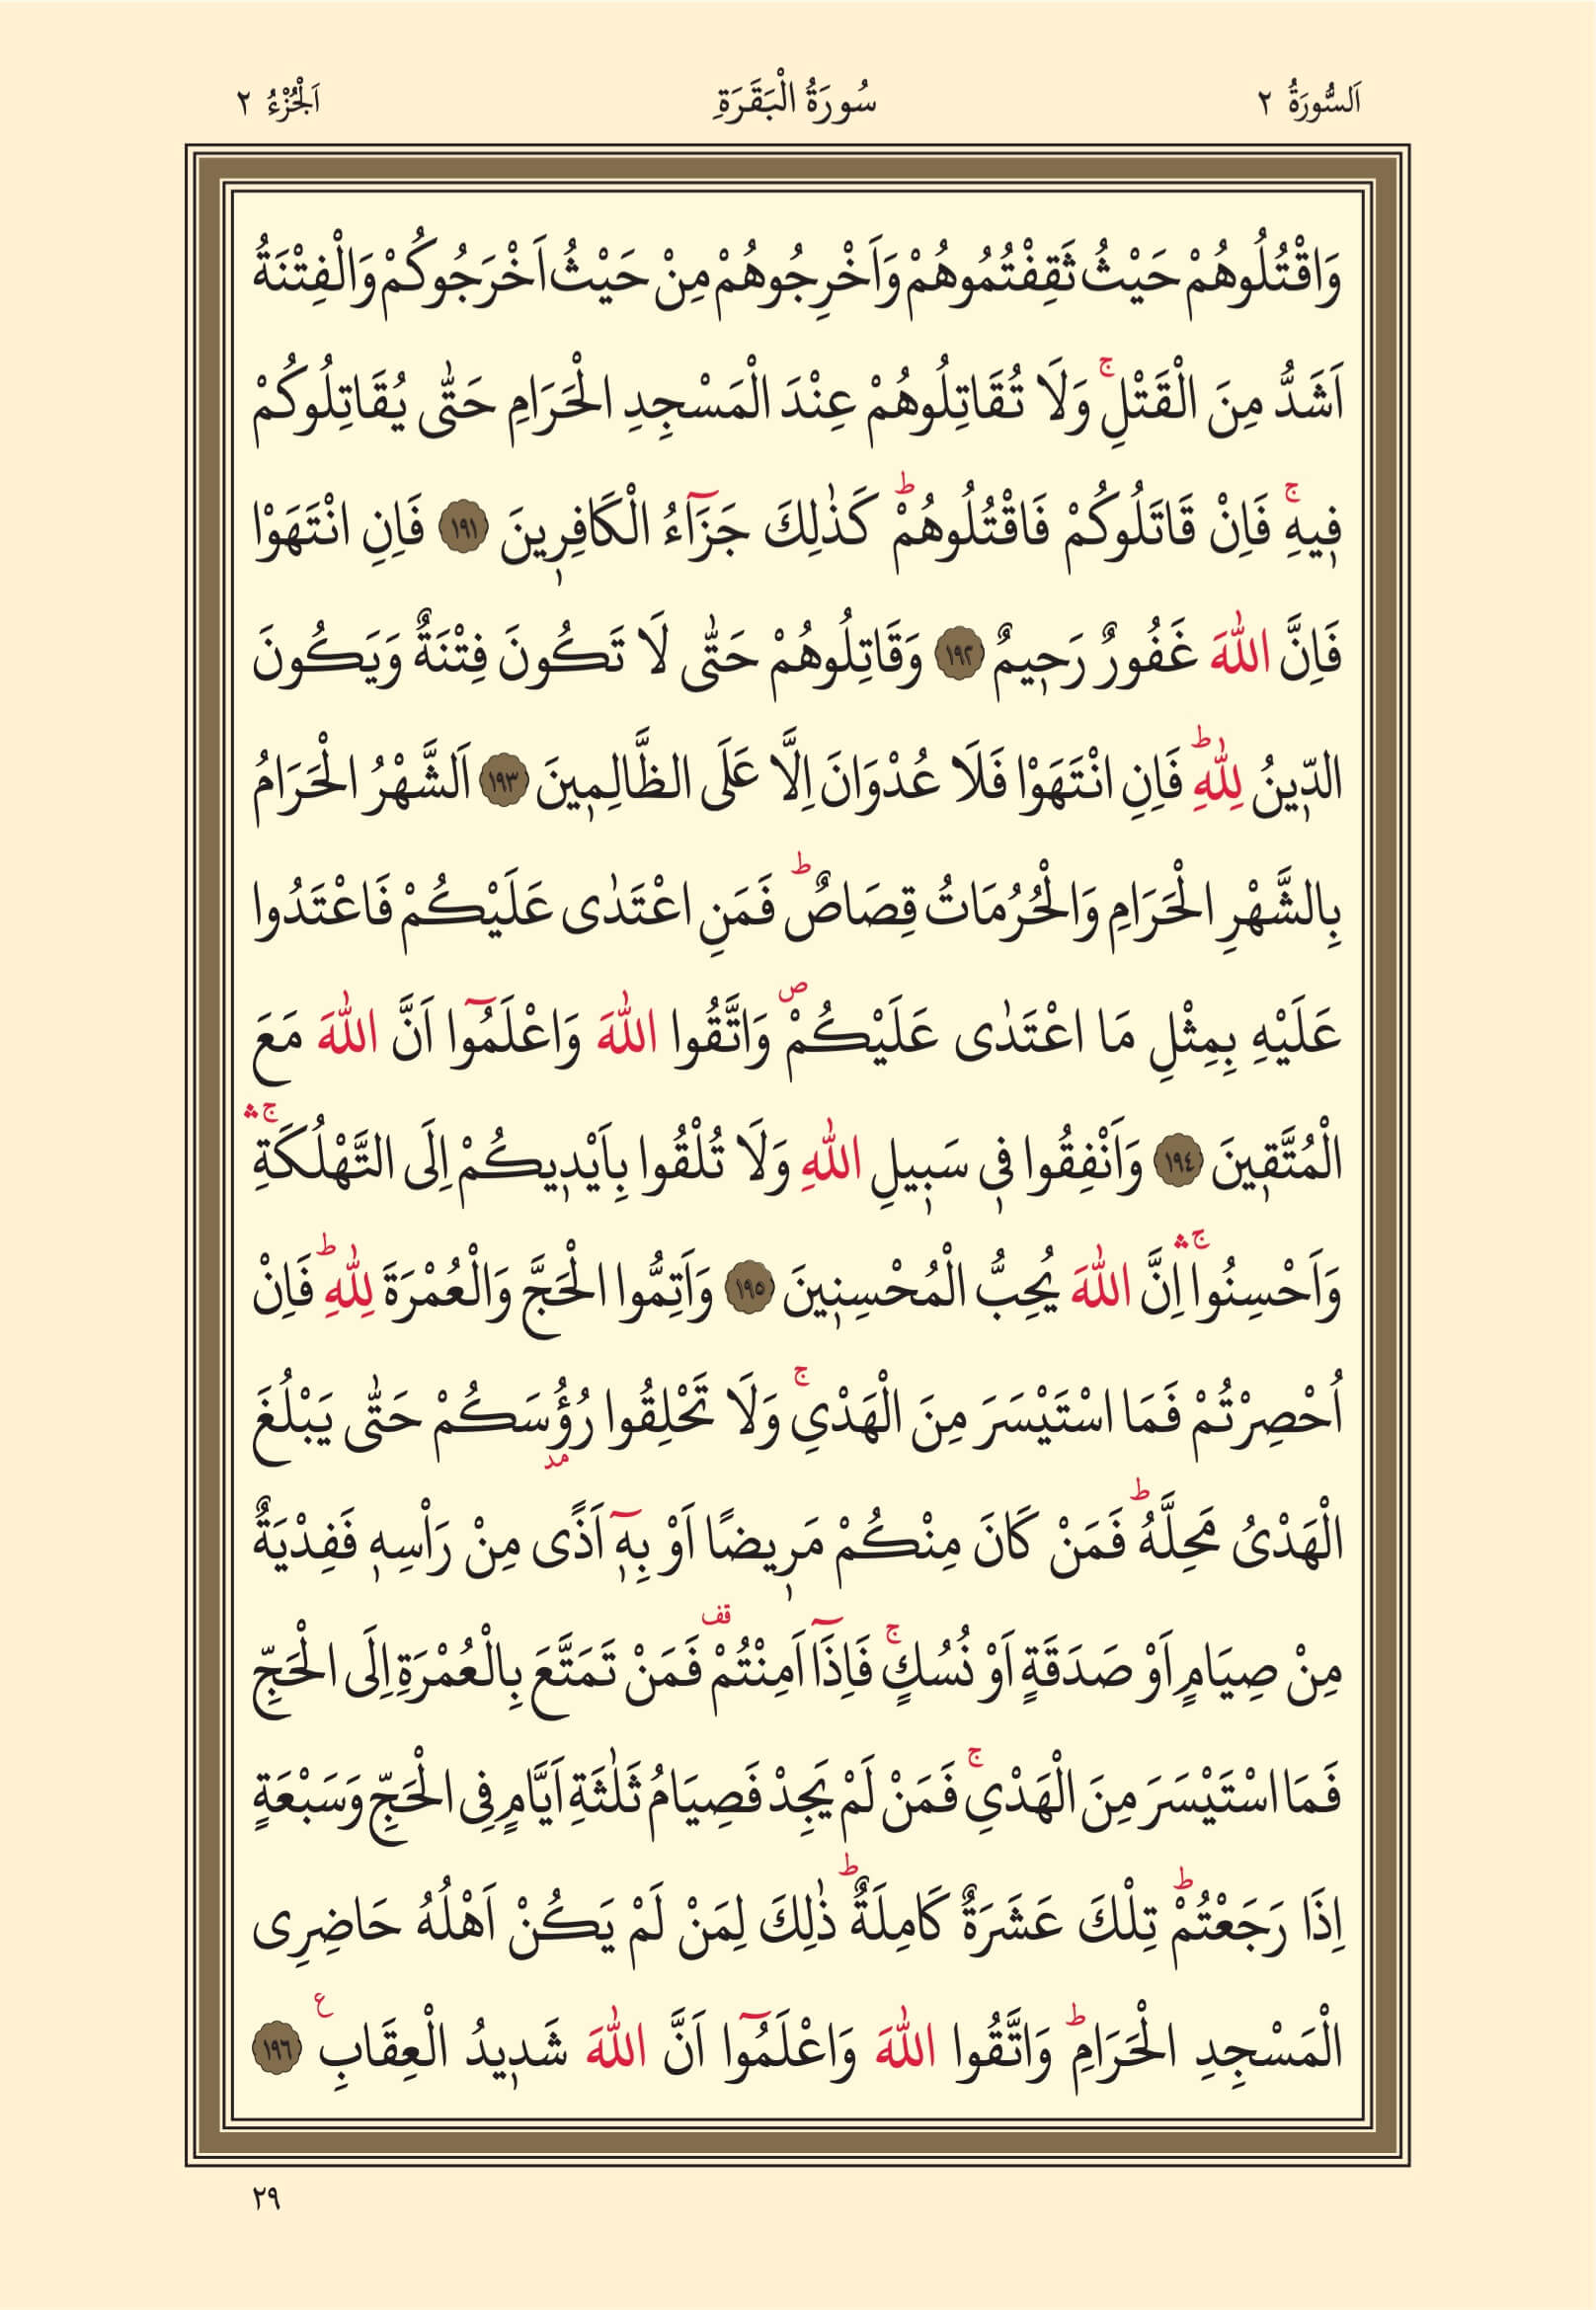 اَلسُّورَةُ ٢ سُورَةُ الْبَقَرَةِ اَلْجُزْءُ ٢
وَاقْتُلُوهُمْ حَيْثُ ثَقِفْتُمُوهُمْ وَاَخْرِجُوهُمْ مِنْ حَيْثُ اَخْرَجُوكُمْ وَالْفِتْنَةُ
اَشَدُّ مِنَ الْقَتْلِۚ وَلَا تُقَاتِلُوهُمْ عِنْدَ الْمَسْجِدِ الْحَرَامِ حَتّٰى يُقَاتِلُوكُمْ
ف۪يهِۚ فَاِنْ قَاتَلُوكُمْ فَاقْتُلُوهُمْؕ كَذٰلِكَ جَزَٓاءُ الْكَافِر۪ينَ ﴿١٩١﴾ فَاِنِ انْتَهَوْا
فَاِنَّ اللّٰهَ غَفُورٌ رَح۪يمٌ ﴿١٩٢﴾ وَقَاتِلُوهُمْ حَتّٰى لَا تَكُونَ فِتْنَةٌ وَيَكُونَ
الدّ۪ينُ لِلّٰهِؕ فَاِنِ انْتَهَوْا فَلَا عُدْوَانَ اِلَّا عَلَى الظَّالِم۪ينَ ﴿١٩٣﴾ اَلشَّهْرُ الْحَرَامُ
بِالشَّهْرِ الْحَرَامِ وَالْحُرُمَاتُ قِصَاصٌؕ فَمَنِ اعْتَدٰى عَلَيْكُمْ فَاعْتَدُوا
عَلَيْهِ بِمِثْلِ مَا اعْتَدٰى عَلَيْكُمْࣕ وَاتَّقُوا اللّٰهَ وَاعْلَمُٓوا اَنَّ اللّٰهَ مَعَ
الْمُتَّق۪ينَ ﴿١٩٤﴾ وَاَنْفِقُوا ف۪ي سَب۪يلِ اللّٰهِ وَلَا تُلْقُوا بِاَيْد۪يكُمْ اِلَى التَّهْلُكَةِۚۛ
وَاَحْسِنُواۚۛ اِنَّ اللّٰهَ يُحِبُّ الْمُحْسِن۪ينَ ﴿١٩٥﴾ وَاَتِمُّوا الْحَجَّ وَالْعُمْرَةَ لِلّٰهِؕ فَاِنْ
اُحْصِرْتُمْ فَمَا اسْتَيْسَرَ مِنَ الْهَدْيِۚ وَلَا تَحْلِقُوا رُؤُ۫سَكُمْ حَتّٰى يَبْلُغَ
الْهَدْيُ مَحِلَّهُؕ فَمَنْ كَانَ مِنْكُمْ مَر۪يضًا اَوْ بِه۪ٓ اَذًى مِنْ رَأْسِه۪ فَفِدْيَةٌ
مِنْ صِيَامٍ اَوْ صَدَقَةٍ اَوْ نُسُكٍۚ فَاِذَٓا اَمِنْتُمْ۠ فَمَنْ تَمَتَّعَ بِالْعُمْرَةِ اِلَى الْحَجِّ
فَمَا اسْتَيْسَرَ مِنَ الْهَدْيِۚ فَمَنْ لَمْ يَجِدْ فَصِيَامُ ثَلٰثَةِ اَيَّامٍ فِي الْحَجِّ وَسَبْعَةٍ
اِذَا رَجَعْتُمْؕ تِلْكَ عَشَرَةٌ كَامِلَةٌؕ ذٰلِكَ لِمَنْ لَمْ يَكُنْ اَهْلُهُ حَاضِرِي
الْمَسْجِدِ الْحَرَامِؕ وَاتَّقُوا اللّٰهَ وَاعْلَمُٓوا اَنَّ اللّٰهَ شَد۪يدُ الْعِقَابِ۟ ﴿١٩٦﴾
٢٩